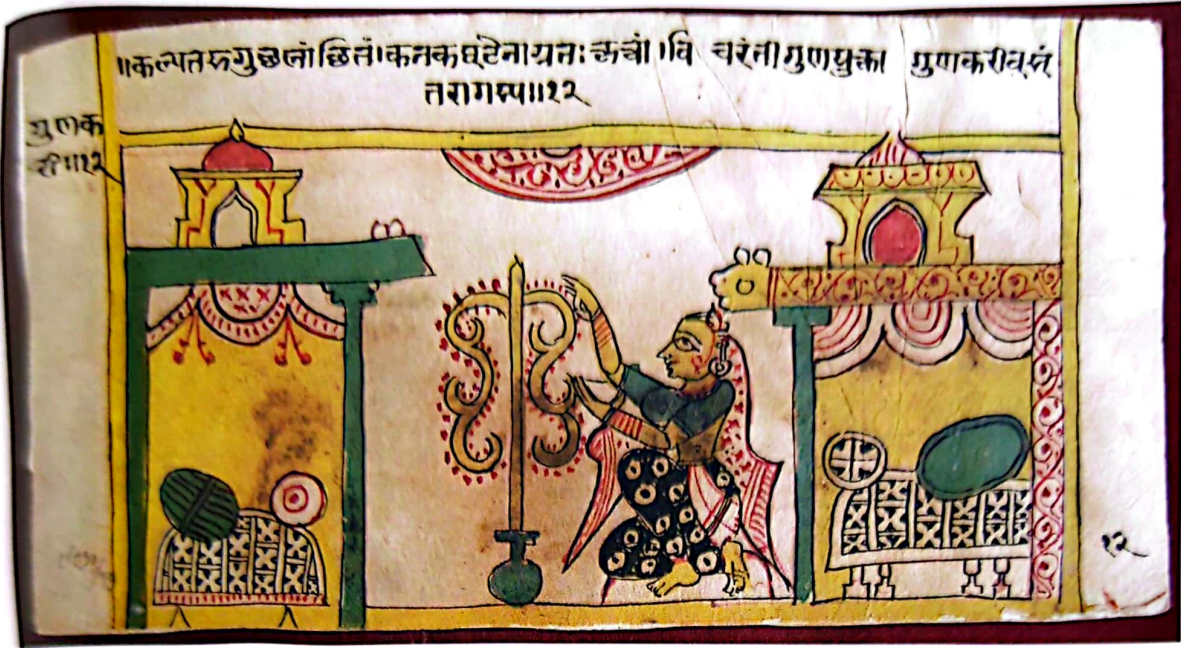 ॥कल्पतरुगुछलांछितं।कनकघटेनाग्रतःरुचां।वि चरंतीगुणयुक्ता गुणकरीवसं
तरागस्य॥१२
गुणक
री॥१२
१२